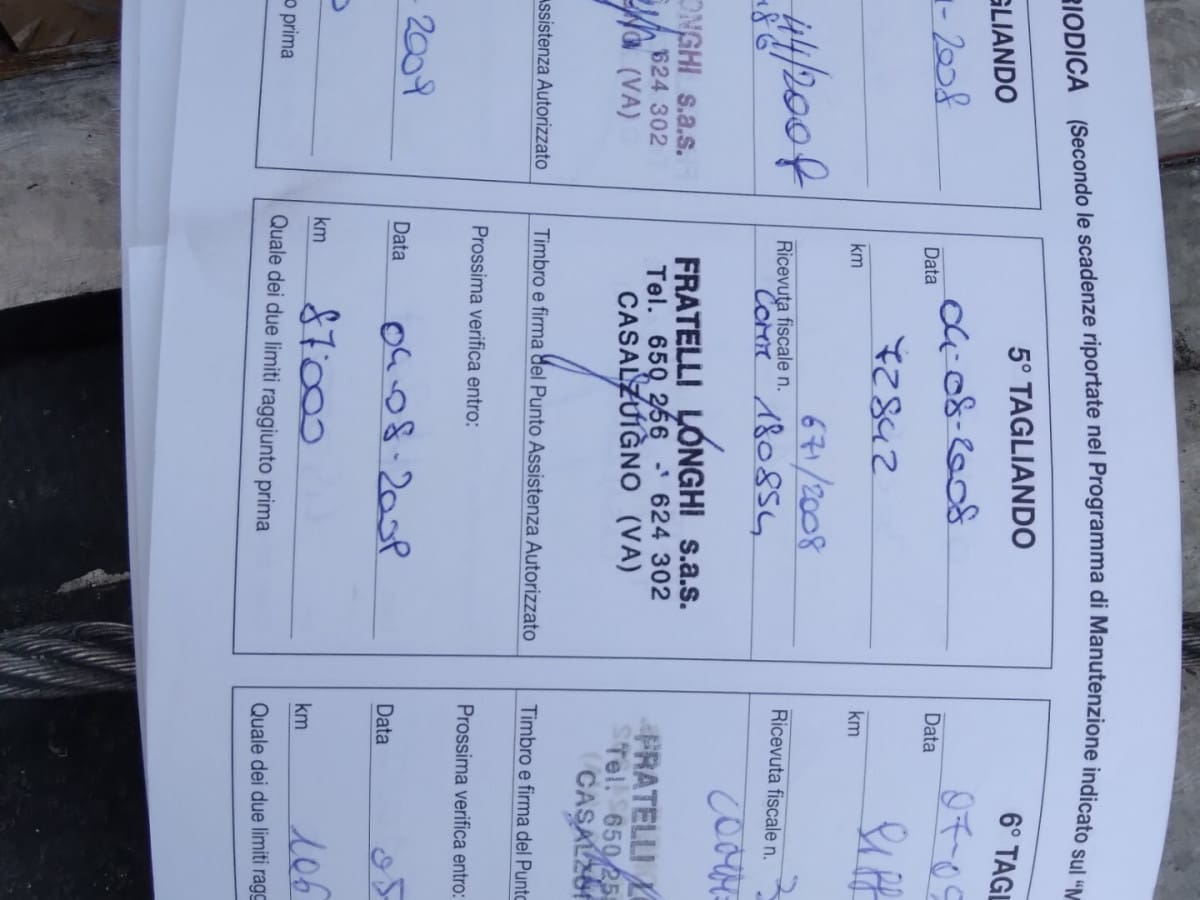 RIODICA (Secondo le scadenze riportate nel Programma di Manutenzione indicato sul "M
GLIANDO
- 2008
ONGHI s.a.s.
624 302
(VA)
Assistenza Autorizzato
- 2009
o prima
5° TAGLIANDO
Data 04-08-2008
km 72842
671/2008
Ricevuta fiscale n. 180854
FRATELLI LONGHI s.a.s.
Tel. 650 256 - 624 302
CASALZUIGNO (VA)
Timbro e firma del Punto Assistenza Autorizzato
Prossima verifica entro:
Data 04-08-2009
km 87.000
Quale dei due limiti raggiunto prima
6° TAGL
Data 07-09
km
Ricevuta fiscale n.
FRATELLI L
Tel. 650 25
CASALZU
Timbro e firma del Punto
Prossima verifica entro:
Data 05
km 106
Quale dei due limiti ragg